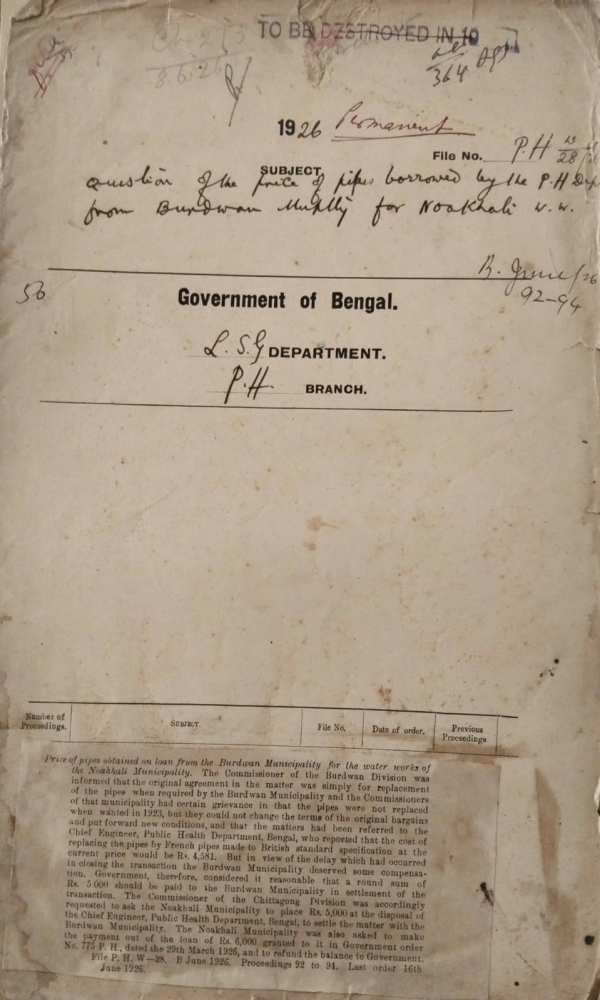 TO BE DESTROYED IN 10
364
8.6.26
1926 Permanent
File No. P.H W/28
SUBJECT
Question of the price of pipes borrowed by the P.H Dep
from Burdwan Muplty for Noakhali W.W.
B. June/26
92-94
56
Government of Bengal.
L. S. G DEPARTMENT.
P.H. BRANCH.
Number of Proceedings. SUBJECT. File No. Date of order. Previous Proceedings
Price of pipes obtained on loan from the Burdwan Municipality for the water works of
the Noakhali Municipality. The Commissioner of the Burdwan Division was
informed that the original agreement in the matter was simply for replacement
of the pipes when required by the Burdwan Municipality and the Commissioners
of that municipality had certain grievance in that the pipes were not replaced
when wanted in 1923, but they could not change the terms of the original bargains
and put forward new conditions, and that the matters had been referred to the
Chief Engineer, Public Health Department, Bengal, who reported that the cost of
replacing the pipes by French pipes made to British standard specification at the
current price would be Rs. 4,581. But in view of the delay which had occurred
in closing the transaction the Burdwan Municipality deserved some compensa-
tion. Government, therefore, considered it reasonable that a round sum of
Rs. 5 000 should be paid to the Burdwan Municipality in settlement of the
transaction. The Commissioner of the Chittagong Division was accordingly
requested to ask the Noakhali Municipality to place Rs. 5,000 at the disposal of
the Chief Engineer, Public Health Department, Bengal, to settle the matter with the
Burdwan Municipality. The Noakhali Municipality was also asked to make
the payment out of the loan of Rs. 6,000 granted to it in Government order
No. 775 P. H., dated the 29th March 1926, and to refund the balance to Government.
File P. H. W—28. B June 1926. Proceedings 92 to 94. Last order 16th
June 1926.